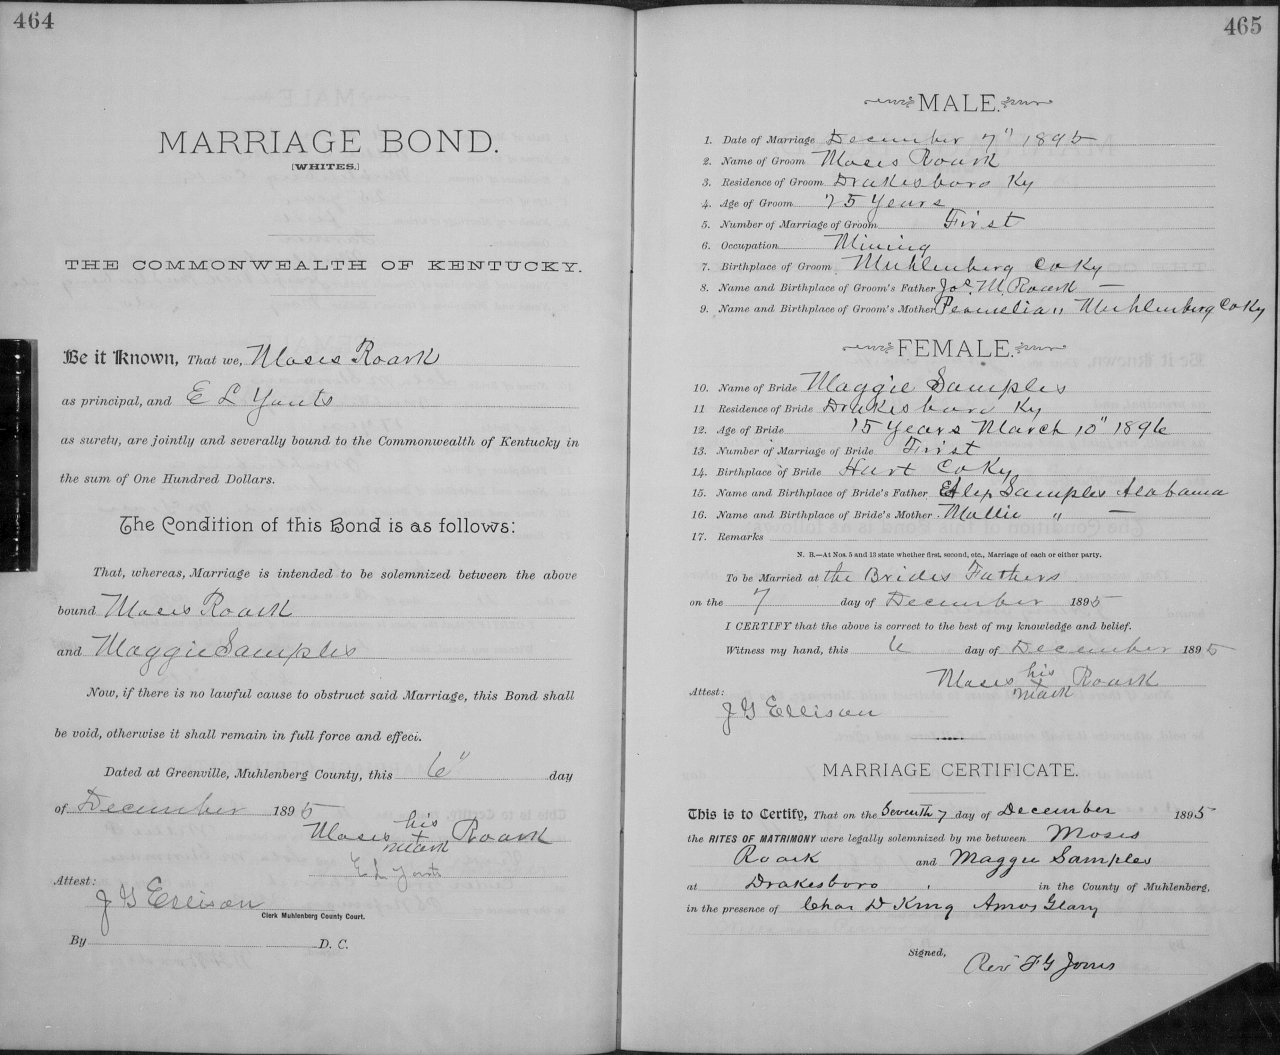 464
MARRIAGE BOND.
[WHITES.]
THE COMMONWEALTH OF KENTUCKY.
Be it Known, That we, Moses Roark
as principal, and E L Yonts
as surety, are jointly and severally bound to the Commonwealth of Kentucky in
the sum of One Hundred Dollars.
The Condition of this Bond is as follows:
That, whereas, Marriage is intended to be solemnized between the above
bound Moses Roark
and Maggie Samples
Now, if there is no lawful cause to obstruct said Marriage, this Bond shall
be void, otherwise it shall remain in full force and effect.
Dated at Greenville, Muhlenberg County, this 6" day
of December 1895
Moses his + mark Roark
E L Yonts
Attest:
J G Ellison
Clerk Muhlenberg County Court.
By D. C.
465
MALE.
1. Date of Marriage December 7" 1895
2. Name of Groom Moses Roark
3. Residence of Groom Drakesboro Ky
4. Age of Groom 75 Years
5. Number of Marriage of Groom First
6. Occupation Mining
7. Birthplace of Groom Muhlenberg Co Ky
8. Name and Birthplace of Groom's Father Jos. M. Roark —
9. Name and Birthplace of Groom's Mother Permelia " Muhlenberg Co Ky
FEMALE.
10. Name of Bride Maggie Samples
11 Residence of Bride Drakesboro Ky
12. Age of Bride 15 Years March 10" 1896
13. Number of Marriage of Bride First
14. Birthplace of Bride Hart Co Ky
15. Name and Birthplace of Bride's Father Alex Samples Alabama
16. Name and Birthplace of Bride's Mother Mallie " —
17. Remarks
N. B.—At Nos. 5 and 13 state whether first, second, etc., Marriage of each or either party.
To be Married at the Brides Fathers
on the 7 day of December 1895
I CERTIFY that the above is correct to the best of my knowledge and belief.
Witness my hand, this 6 day of December 1895
Moses his + mark Roark
Attest:
J G Ellison
MARRIAGE CERTIFICATE.
This is to Certify, That on the Seventh 7 day of December 1895
the RITES OF MATRIMONY were legally solemnized by me between Moses
Roark and Maggie Samples
at Drakesboro, in the County of Muhlenberg,
in the presence of Chas D King Amos Geary
Signed,
Rev F G Jones